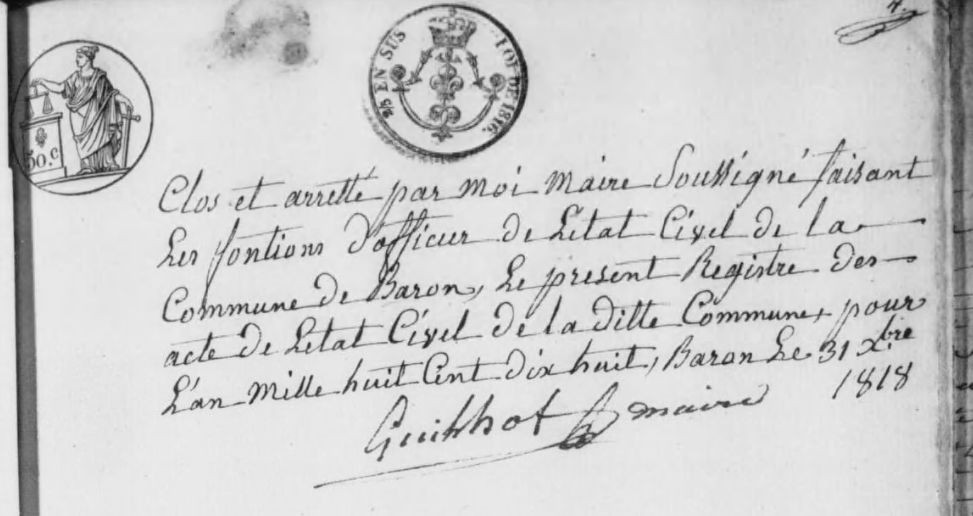 4.
50. C
2/5 EN SUS
LOI DE 1816.
Clos et arretté par moi maire Soussigné faisant
Les fontions d'officier de Letat Civel de la
Commune de Baron, Le present Registre des
acte de Letat Civel de la ditte Commune, pour
L'an mille huit Cent dix huit, Baron Le 31 Xbre
1818
maire